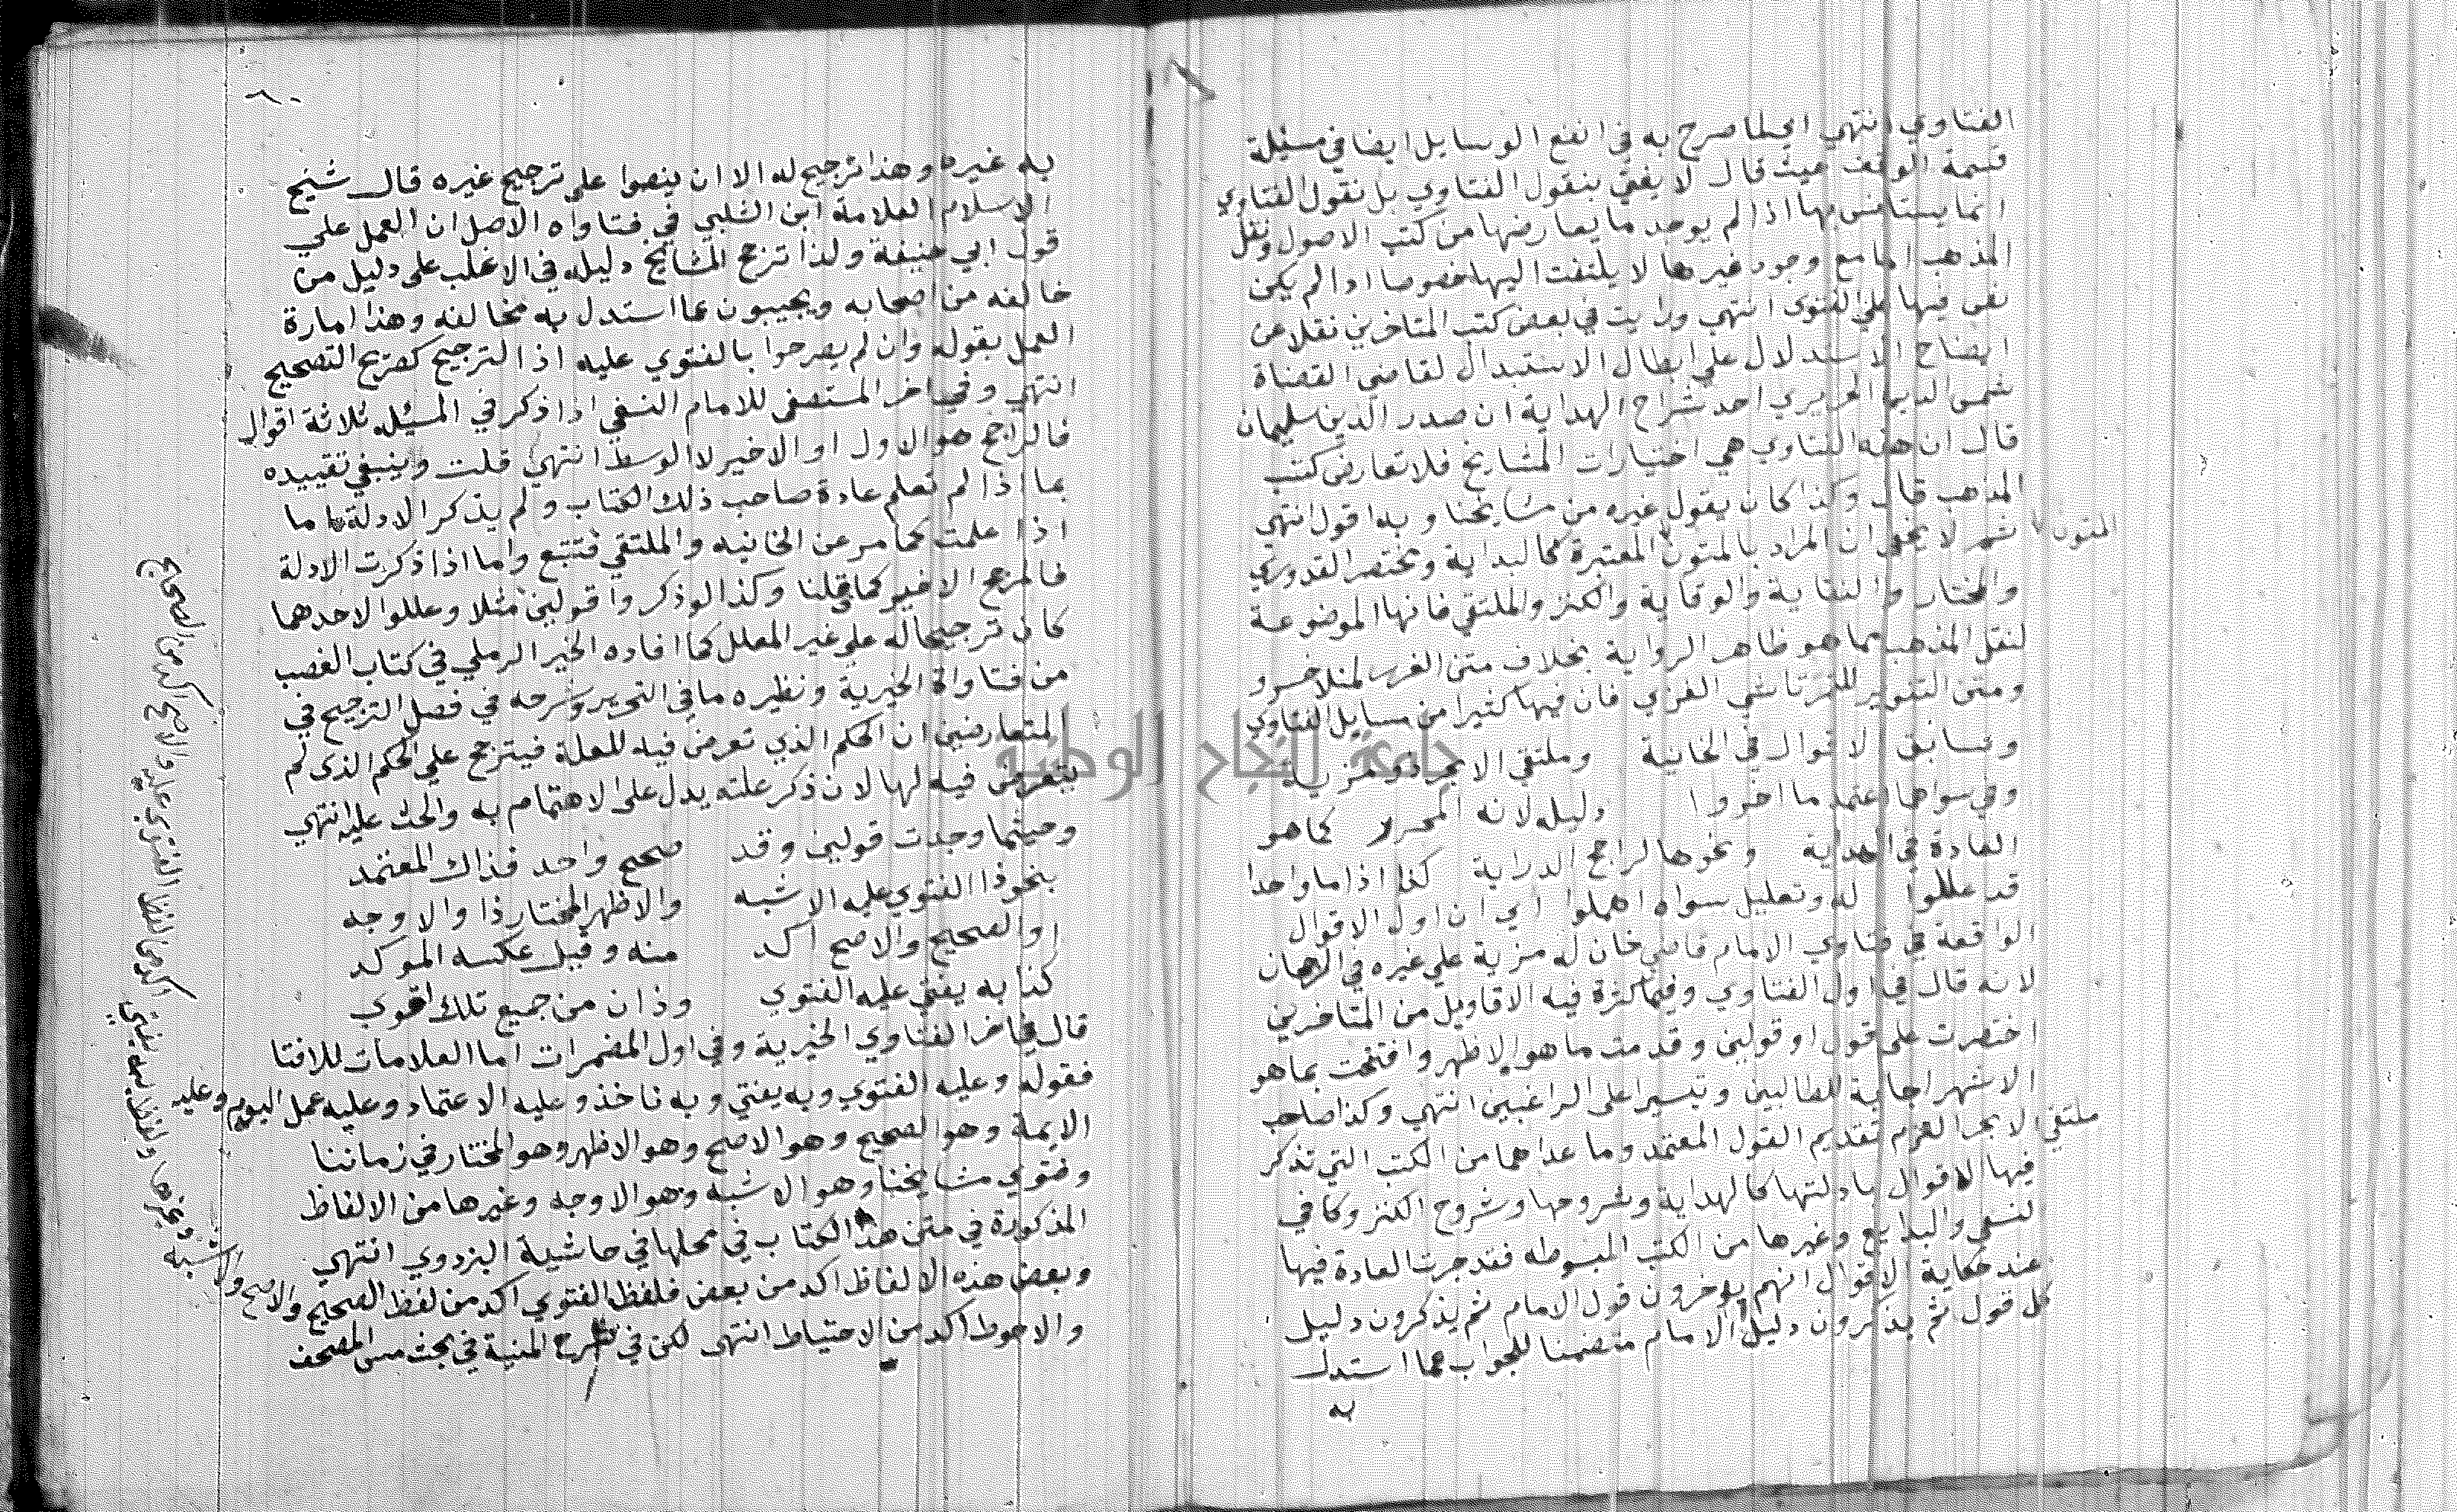 الفتاوي انتهي ايضا صرح به في انفع الوسايل ايضا في مسئلة
قسمة الوقف حيث قال لا يفتي بنقول الفتاوي بل نقول الفتاوي
انما يستانس بها اذا لم يوجد ما يعارضها من كتب الاصول ونقل
المذهب اما مع وجود غيرها لا يلتفت اليها خصوصا اذا لم يكن
نص فيها علي الفتوي انتهي ورايت في بعض كتب المتاخرين نقلا عن
ايضاح الاستدلال علي ابطال الاستبدال لقاضي القضاة
شمس الدين الحريري احد شراح الهداية ان صدر الدين سليمان
قال ان هذه الفتاوي هي اختيارات المشايخ فلا تعارض كتب
المذاهب قال وكذا كان يقول غيره من مشايخنا وبه اقول انتهي
المتون
ثم لا يخفي ان المراد بالمتون المعتبرة كالبداية ومختصر القدوري
والمختار والنقاية والوقاية والكنز والملتقي فانها الموضوعة
لنقل المذهب مما هو ظاهر الرواية بخلاف متن الغرر لمنلا خسرو
ومتن التنوير للتمرتاشي الغزي فان فيها كثيرا من مسايل الفتاوي
وسابق الاقوال في الخانية وملتقي الابحر ذو مزية
وفي سواها اعتمد ما اخروا دليله لانه المحرر كما هو
العادة في الهداية ونحوها لراجح الدراية كذا اذا ما واحدا
قد عللوا له وتعليل سواه اهملوا اي ان اول الاقوال
الواقعة في فتاوي الامام قاضي خان له مزية علي غيره في الرجحان
لانه قال في اول الفتاوي وفيما كثرة فيه الاقاويل من المتاخرين
اختصرت علي قول او قولين وقدمت ما هو الاظهر وافتتحت بما هو
الاشهر اجابة للطالبين وتيسيرا علي الراغبين انتهي وكذا صاحب
ملتقي الابحر التزم تقديم القول المعتمد وما عداهما من الكتب التي تذكر
فيها الاقوال بادلتها كالهداية وشروحها وشروح الكنز وكافي
لنسفي والبدايع وغيرها من الكتب المبسوطه فقد جرت العادة فيها
عند حكاية الاقوال انهم يؤخرون قول الامام ثم يذكرون دليل
كل قول ثم يذكرون دليل الامام متضمنا للجواب عما استدل
به
به غيره وهذا ترجيح له الا ان ينصوا علي ترجيح غيره قال شيخ
الاسلام العلامة ابن الشلبي في فتاواه الاصل ان العمل علي
قول ابي حنيفة ولذا ترجح المشايخ دليله في الاغلب علي دليل من
خالفه من اصحابه ويجيبون عما استدل به مخالفه وهذا امارة
العمل بقوله وان لم يصرحوا بالفتوي عليه اذ الترجيح كصريح التصحيح
انتهي وفي اخر المستصفي للامام النسفي اذا ذكر في المسئله ثلاثة اقوال
فالراجح هو الاول او الاخير لا الوسط انتهي قلت وينبغي تقييده
بما اذا لم تعلم عادة صاحب ذلك الكتاب ولم يذكر الادلة اما
اذا علمت كما مر عن الخانيه والملتقي فتتبع واما اذا ذكرت الادلة
فالمرجح الاخير كما قلنا وكذا لو ذكروا قولين مثلا وعللوا لاحدهما
كان ترجيحا له علي غير المعلل كما افاده الخير الرملي في كتاب الغصب
من فتاواه الخيرية ونظيره ما في التحرير وشرحه في فصل الترجيح في
المتعارضين ان الحكم الذي تعرض فيه للعلة فيترجح علي الحكم الذي لم
يتعرض فيه لها لان ذكر علته يدل علي الاهتمام به والحث عليه انتهي
وحيثما وجدت قولين وقد صحيح واحد فذاك المعتمد
بنحو ذا الفتوي عليه الاشبه والاظهر المختار ذا والاوجه
او الصحيح والاصح اكد منه وقيل عكسه الموكد
كذا به يفتي عليه الفتوي وذان من جميع تلك اقوي
قال في اخر الفتاوي الخيرية وفي اول المضمرات اما العلامات للافتا
فقوله وعليه الفتوي وبه يفتي وبه ناخذ وعليه الاعتماد وعليه عمل اليوم وعليه
الايمة وهو الصحيح وهو الاصح وهو الاظهر وهو المختار في زماننا
وفتوي مشايخنا وهو الاشبه وهو الاوجه وغيرها من الالفاظ
المذكورة في متن هذا الكتاب في محلها في حاشية البزدوي انتهي
وبعض هذه الالفاظ اكد من بعض فلفظ الفتوي اكد من لفظ الصحيح والاصح والاشبه
والاحوط اكد من الاحتياط انتهي لكن في شرح المنية في بحث مس المصحف
وغيرها ولفظ به يفتي
اكد من لفظ الفتوي عليه والاصح اكد من الصحيح
جامعة النجاح الوطنية